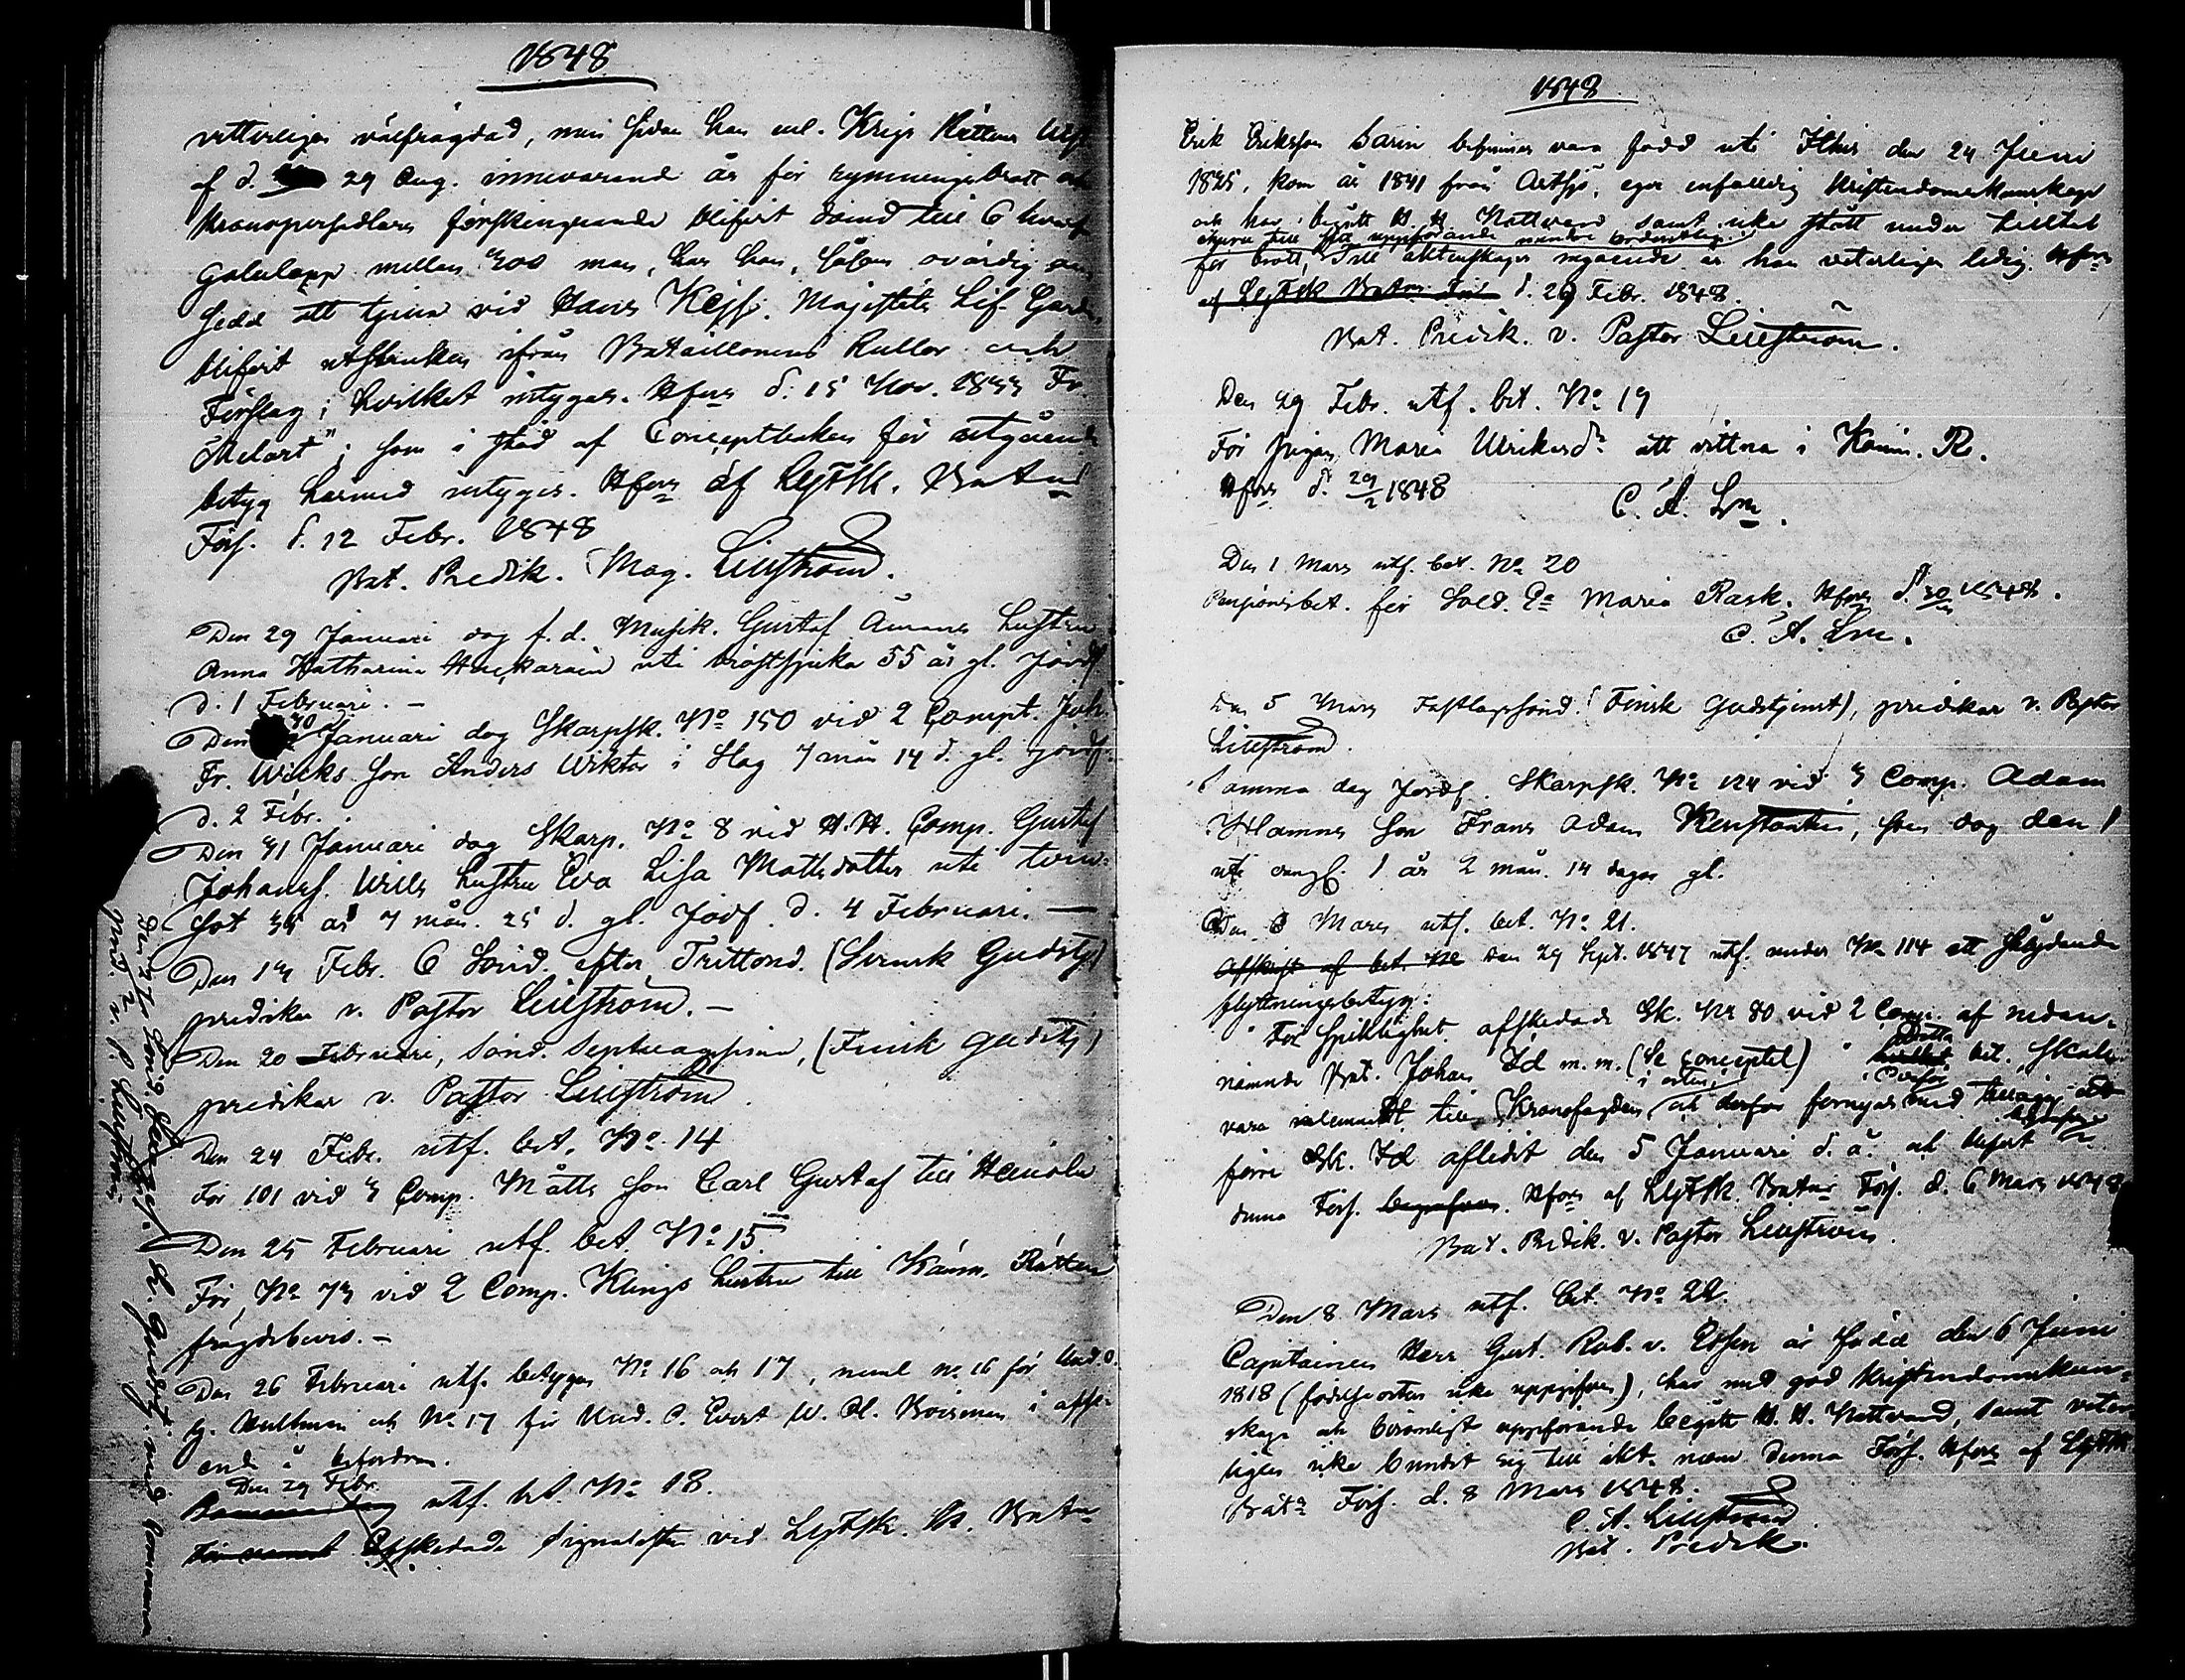 1848
vitterligen välfrägdad, men sedan han enl. Krigs Rättens Utsl
af d. 29 Aug. innevarande år för rymningsbrott och
Kronopersedlars förskingrande blifvit dömd till 6 hvarf
Gatulopp mellan 300 man, har han, såsom ovärdig an-
sedd att tjena vid Hans Kejs. Majestäts Lif Garde,
blifvit utstruken ifrån Bataillonens Rullor och
Förslag; hvilket intygas. Hfors d. 15 Nov. 1833 Fr.
Melart"; som i stöd af Conceptboken för utgående
betyg härmed intygas. Hfors af LGFSk. Batns
Förs. d. 12 Febr. 1848
Bat. Predik. Mag. Liljström.
Den 29 Januari dog f. d. Musik. Gustaf Åmans hustru
Anna Katharina uti bröstsjuka 55 år gl. Jordf
d. 1 Februari. —
Den 30 Januari dog Skarpsk. No 150 vid 2 Compt. Joh.
Fr. Wicks son Anders Wiktor i Slag 7 mån 14 d. gl. jordf.
d. 2 Febr.
Den 31 Januari dog Skarp. No 8 vid H.H. Comp. Gustaf
Johanss. Wills hustru Eva Lisa Mattsdotter uti tvin-
sot 35 år 7 mån. 25 d. gl. Jordf. d. 4 Februari. —
Den 13 Febr. 6 Sönd. efter Trettond. (Svensk Gudstj)
predikar v. Pastor Liljström. —
Den 20 Februari, Sönd. Septuagesima, (Finsk Gudstj)
predikar v. Pastor Liljström.
Den 24 Febr. utf. bet. No 14
För 101 vid 3 Comp. Mätts son Carl Gustaf till Heinola
Den 25 Februari utf. bet. No 15.
För No 73 vid 2 Comp. Klings hustru till Kämn. Rätten
frägdebevis. —
Den 26 Februari utf. betygen No 16 och 17, neml no 16 för Und. O.
G. Hultman och No 17 för Und. O. Evert W. Al. Boisman i afse-
ende å befordran.
Den 29 Febr.
utf. bet. No 18.
Afskedade Signalisten vid LGFSk. Batn
v. P. Liljström
1848
Erik Eriksson Sarin befinnes vara född uti Ithis den 24 Juni
1825, kom år 1841 från Artsjö, eger enfaldig Kristendomskunskap
och har begått H. H. Nattvard samt icke stått under tilltal
ehuru till sitt uppförande mindre ordentlig.
för brott, Till äktenskaps ingående är han veterligen ledig. Hfors
af LGFSk Batns Förs d. 29 Febr. 1848.
Bat. Predik. v. Pastor Liljström.
Den 29 Febr. utf. bet. No 19
För pigan Maria Ulriksdr att vittna i Kämn. R.
Hfors d. 29/2 1848
C. A. Lm.
Den 1 Mars utf. bet. No 20
Pensionsbet. för Sold. Ea Maria Rask. Hfors d. 1848.
C. A. Lm.
Den 5 Mars Fastlagssönd. (Finsk Gudstjenst), predikar v. Pastor
Liljström.
Samma dag jordf. Skarpsk. No 124 vid 3 Comp. Adam
Hamnes son Frans Adam Konstantin, som dog den 1
uti 1 år 2 mån. 14 dagar gl.
Den 6 Mars utf. bet. No 21.
Afskrift af bet. No Den 29 Sept. 1847 utf. under No 114 ett så lydande
flyttningsbetyg:
"För Spittlighet afskedade Sk. No 80 vid 2 Comp. af nedan-
nämnde Bat. Johan Id m. m. (Se Conceptet)" Detta bet. skall
vara inlemnadt till Kronofogden i orten, och derför förnyas med tillägg att
förre Sk. Id aflidit den 5 Januari d. å. och blifvit
denna Förs. begrafven. Hfors af LGFSk. Batns Förs. d. 6 Mars 1848
Bat. Predik. v. Pastor Liljström.
Den 8 Mars utf. bet. No 22.
Capitainen Herr Gust. Rob. v. Essen är född den 6 Juni
1818 (födelseorten icke uppgifven), har med god Kristendomskun-
skap och berömligt uppförande begått H. H. Nattvard, samt veter-
ligen icke bundit sig till äkt. inom denna Förs. Hfors af LGFSk
Batns Förs. d. 8 Mars 1848.
C. A. Liljström
Bat. Predik.